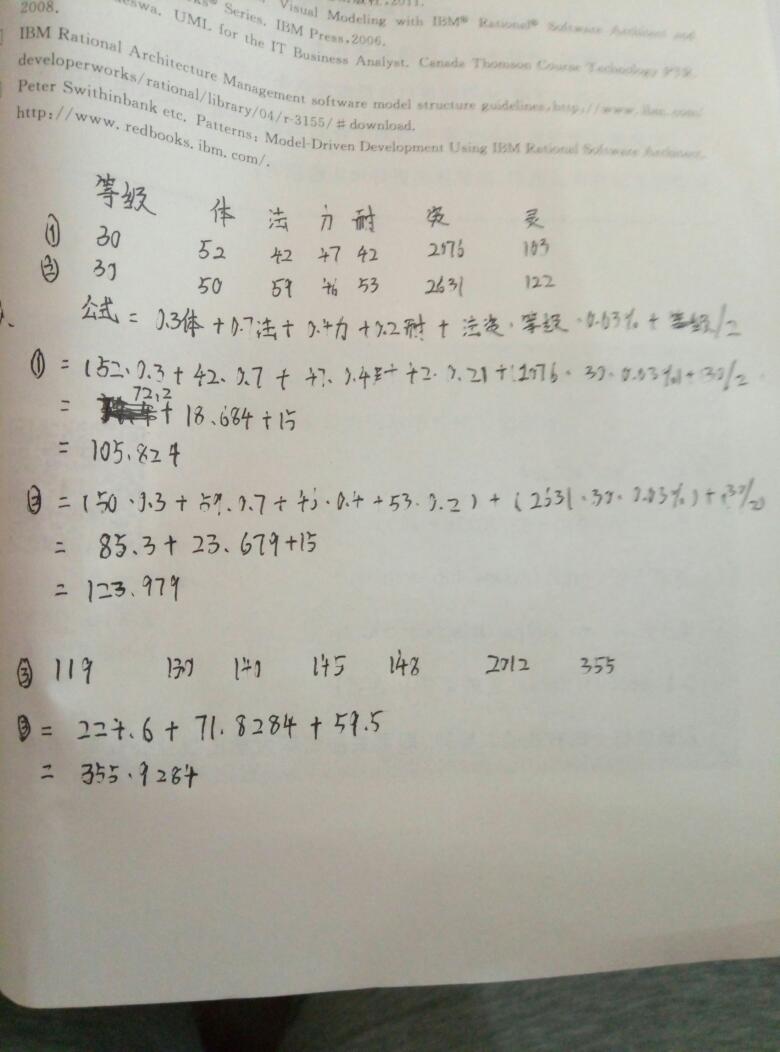 Visual Modeling with IBM® Rational® Software Architect and
2008.
Series. IBM Press, 2006.
UML for the IT Business Analyst. Canada Thomson Course Technology PTR.
IBM Rational Architecture Management software model structure guidelines, http://www.ibm.com/
developerworks/rational/library/04/r-3155/#download.
Peter Swithinbank etc. Patterns: Model-Driven Development Using IBM Rational Software Architect.
http://www.redbooks.ibm.com/.
等级 体 法 力 耐 资 灵
① 30 52 42 47 42 2076 103
② 30 50 59 46 53 2631 122
公式 = 0.3体 + 0.7法 + 0.4力 + 0.2耐 + 法资·等级·0.03% + 等级/2
① = (52·0.3 + 42·0.7 + 47·0.4 + 42·0.2) + (2076·30·0.03%) + 30/2
= 72.2 + 18.684 + 15
= 105.824
② = (50·0.3 + 59·0.7 + 46·0.4 + 53·0.2) + (2631·30·0.03%) + (30/2)
= 85.3 + 23.679 + 15
= 123.979
③ 119 130 140 145 148 2012 355
③ = 224.6 + 71.8284 + 59.5
= 355.9284